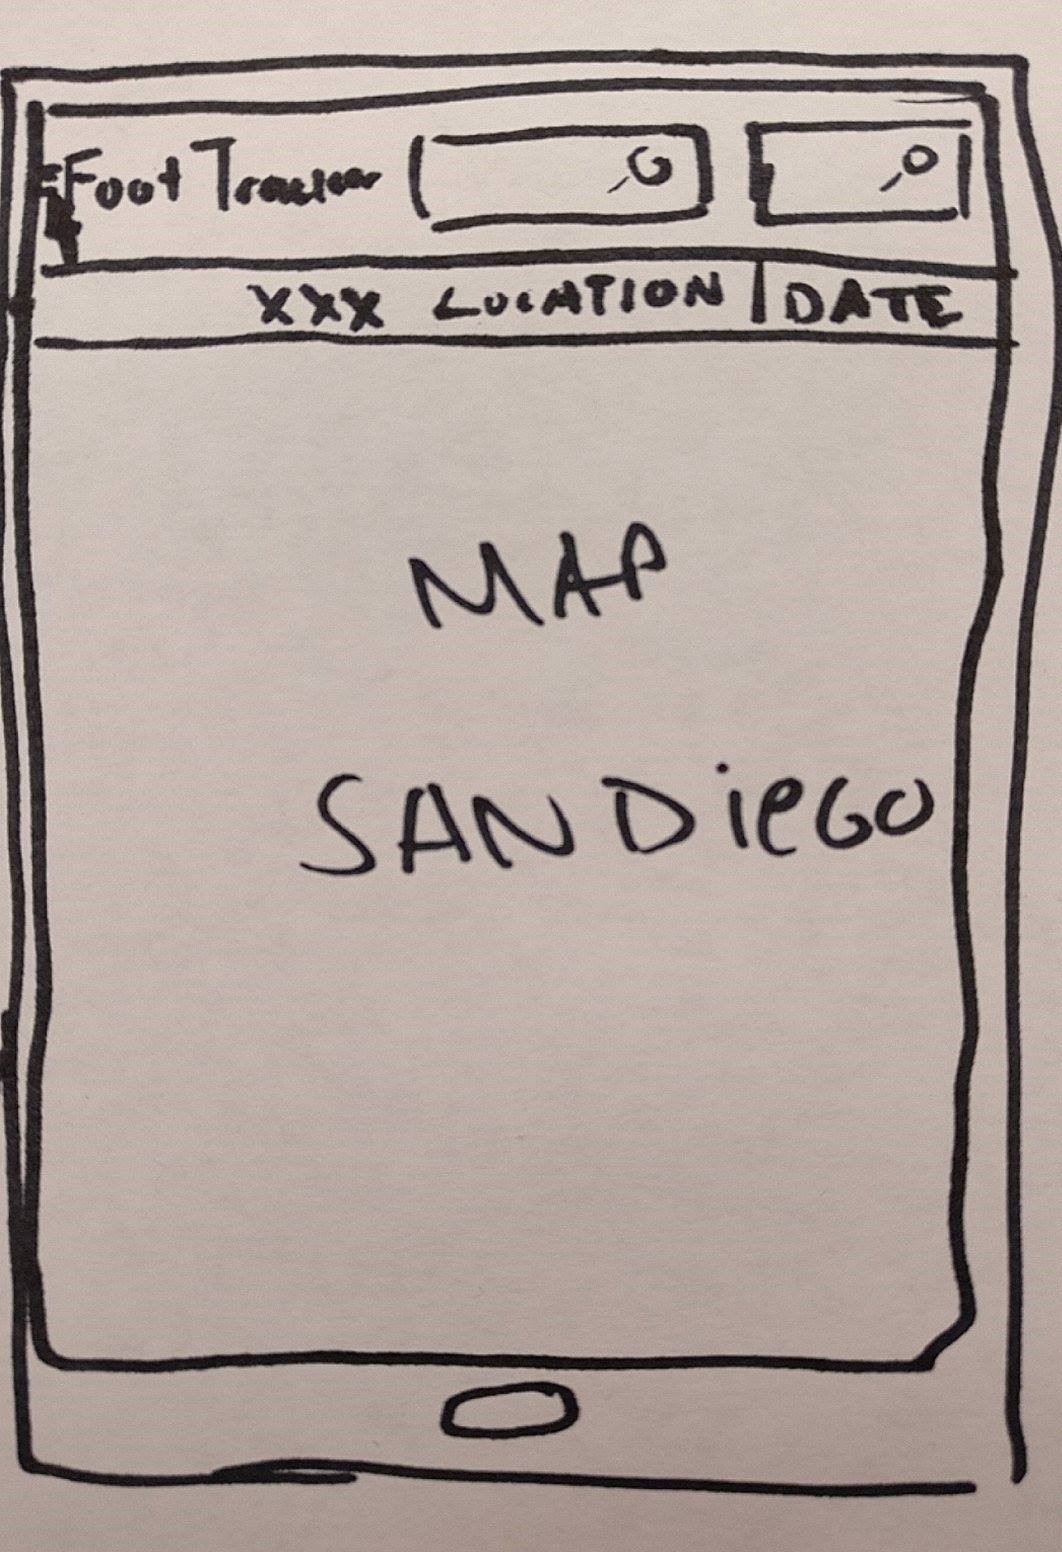 Foot Tracker
XXX LOCATION | DATE
MAP
SAN DiEGO